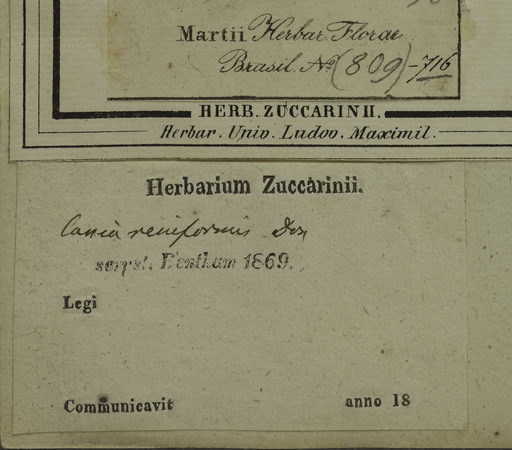 Martii Herbar. Florae
Brasil. No (809) - 716
HERB. ZUCCARINII.
Herbar. Univ. Ludov. Maximil.
Herbarium Zuccarinii.
reniformis Don
scrips. Bentham 1869.
Legi
Communicavit anno 18